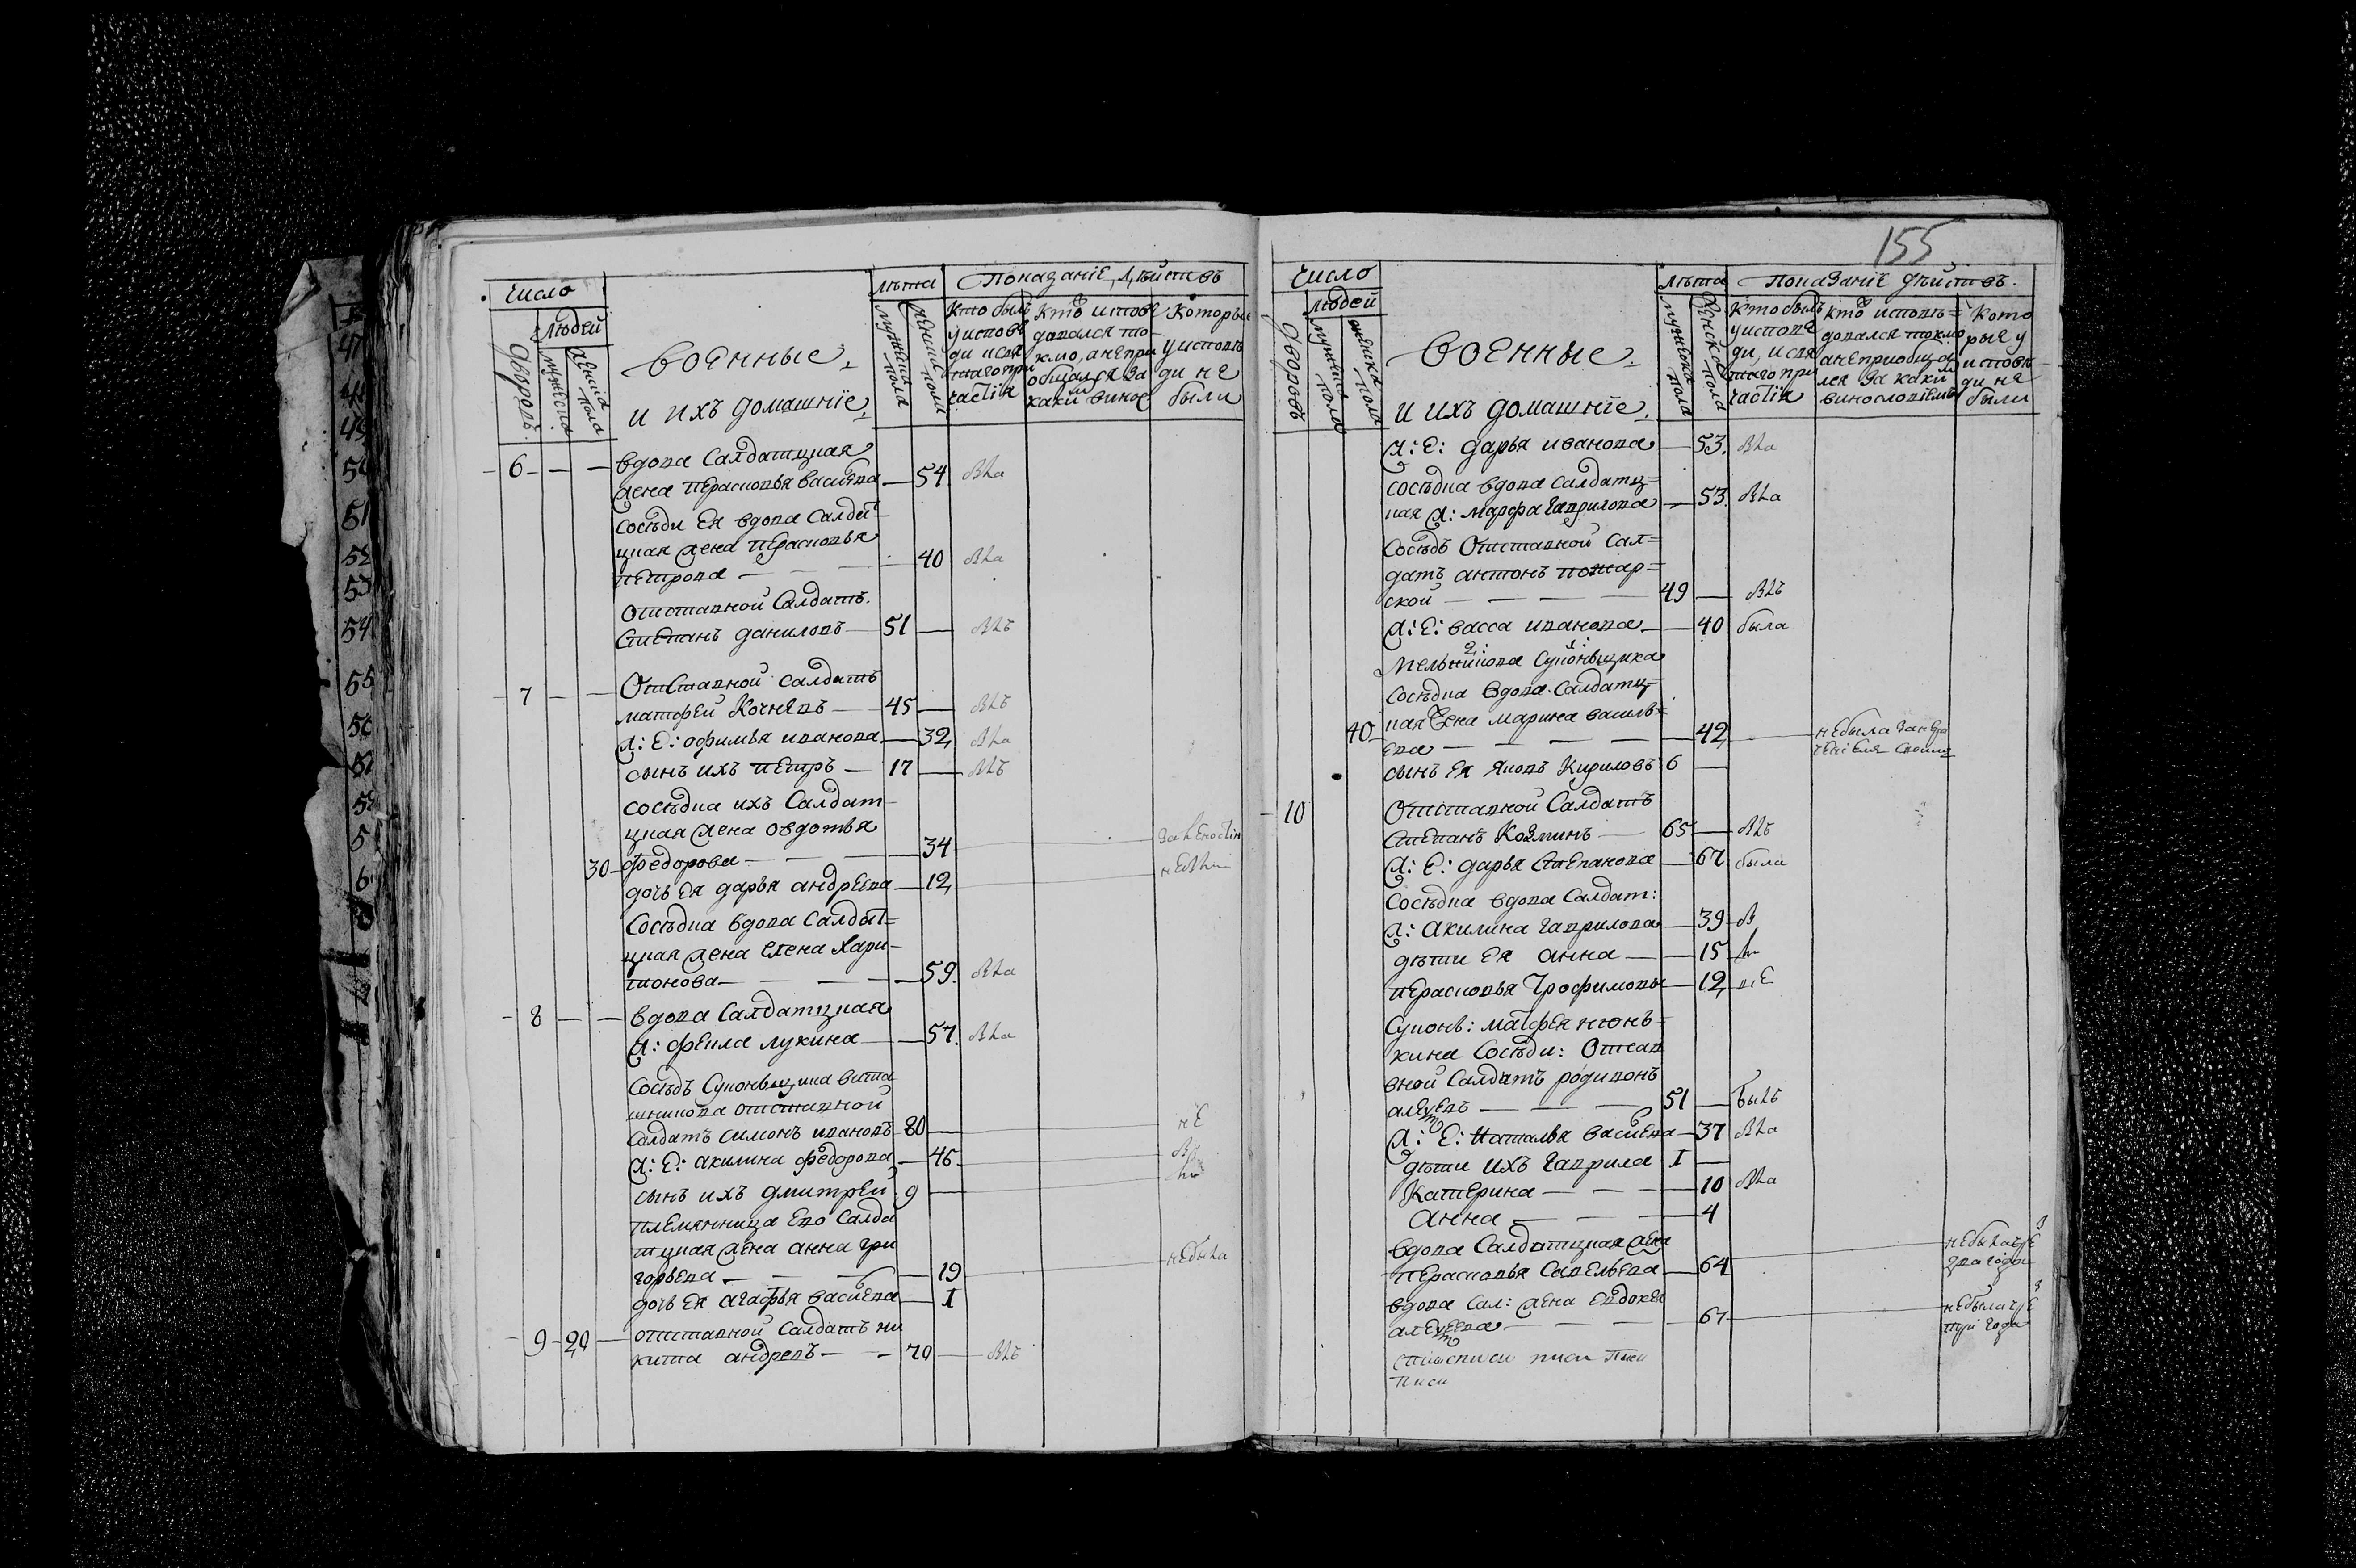 число
людей
дворовъ
мужеска пола
женска пола
военные
и ихъ домашніе
лѣта
мужеска пола
женска пола
показаніе дѣйствъ
кто былъ
у исповѣ
ди и свя
таго при
частія
кто испове
довался то
кмо, а не при
общался за
какимъ винос
которые
у исповѣ
ди не
были
6
вдова Салдатцкая
жена Перасковья Васильева 54 была
сосѣди ея вдова Салдат
цкая жена Перасковья
Петрова 40 была
Отставной Салдатъ
Степанъ Даниловъ 51 былъ
7 Отставной Салдатъ
Матфей Кочневъ 45 былъ
ж: Е: Офимья Иванова 32 была
сынъ ихъ Петръ 17 былъ
сосѣдка ихъ Салдат
цкая жена Овдотья
30 Федорова 34
дочь ея Дарья Андреева 12
Сосѣдка вдова Салдат=
цкая жена Елена Хари
тонова 59 была
8 вдова Салдатцкая
ж: Фекла Лукина 57 была
Сосѣдъ Суконьщика
отставной
Салдатъ Симонъ Ивановъ 80 не
ж: Е: Акилина Федорова 46 бы
сынъ ихъ Дмитрей 9 ли
племянница Ево Салда
тцкая жена Анна Гри
горьева 19 небыла
дочь ея Агафья Васильева 1
9 20 отставной Салдатъ Ни
кита Андревъ 70 былъ
155
число
людей
дворовъ
мужеска пола
женска пола
военные
и ихъ домашніе
лѣта
мужеска пола
женска пола
показаніе дѣйствъ
кто былъ
у испове
ди, и свя
таго при
частія
кто исповѣ=
довался токмо
а не приобща
лся за какимъ
винословіемъ
кото
рые у
исповѣ
ди не
были
ж: Е: Дарья Иванова 53 была
сосѣдка вдова салдатц=
кая ж: Марфа Гаврилова 53 была
Сосѣдъ Отставной Сал=
датъ Антонъ Пожар=
ской 49 былъ
ж: Е: Васса Иванова 40 была
Мельникова Суконьщика
Сосѣдка вдова Салдатц=
40 кая жена Марина Василь=
ева 42 небыла за
сынъ ея Яковъ Кириловъ 6
10 Отставной Салдатъ
Степанъ Козминъ 65 былъ
ж: Е: Дарья Степанова 67 была
Сосѣдка вдова Салдат:
ж: Акилина Гаврилова 39 бы
дѣти ея Анна 15 ли
Перасковья Трофимовы 12 все
Суконь: Матфея Нюнь=
кина Сосѣди: Отстав
вной Салдатъ Родивонъ
Алексеевъ 51 былъ
ж: Е: Наталья Васильева 37 была
дѣти ихъ Гаврила 1
Катерина 10 была
Анна 4
вдова Салдатцкая жена
Перасковья Савельева 64 небыла
два года
вдова Сал: жена Евдокея
Алексеева 67 небыла
три года
писи